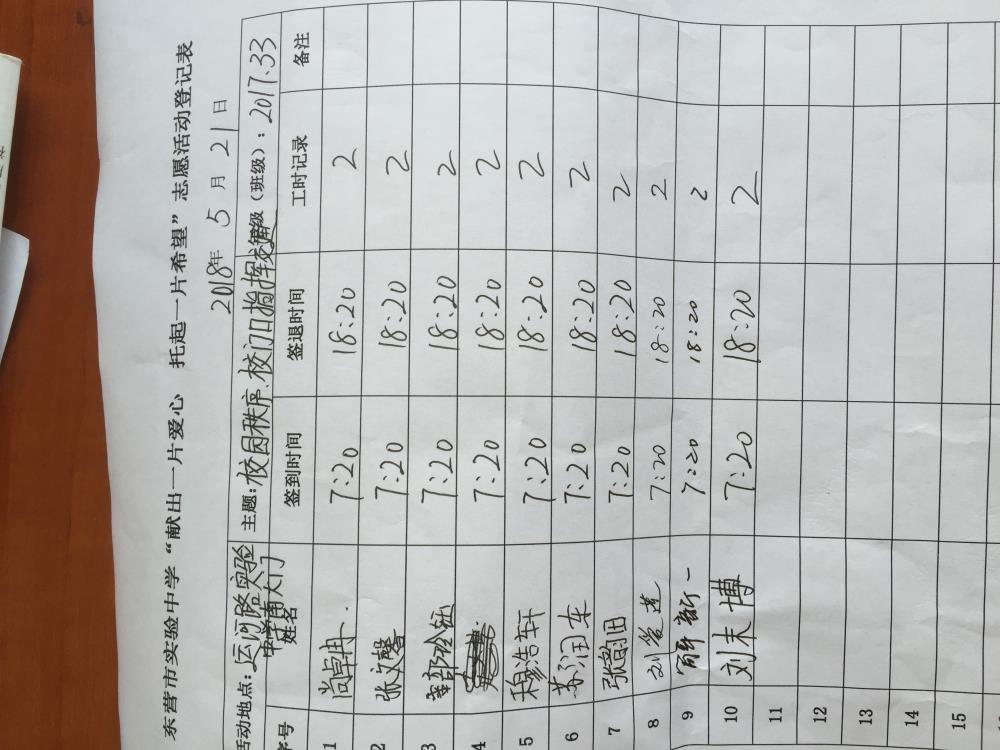 东营市实验中学“献出一片爱心 托起一片希望”志愿活动登记表
2018年 5 月 21 日
活动地点：运河路实验中学南大门 主题：校园秩序.校门口指挥交通 年级（班级）：2017.33
序号 姓名 签到时间 签退时间 工时记录 备注
1 尚卓冉 7:20 18:20 2
2 张文馨 7:20 18:20 2
3 7:20 18:20 2
4 7:20 18:20 2
5 穆浩轩 7:20 18:20 2
6 苏润东 7:20 18:20 2
7 7:20 18:20 2
8 7:20 18:20 2
9 解新一 7:20 18:20 2
10 刘未博 7:20 18:20 2
11
12
13
14
15